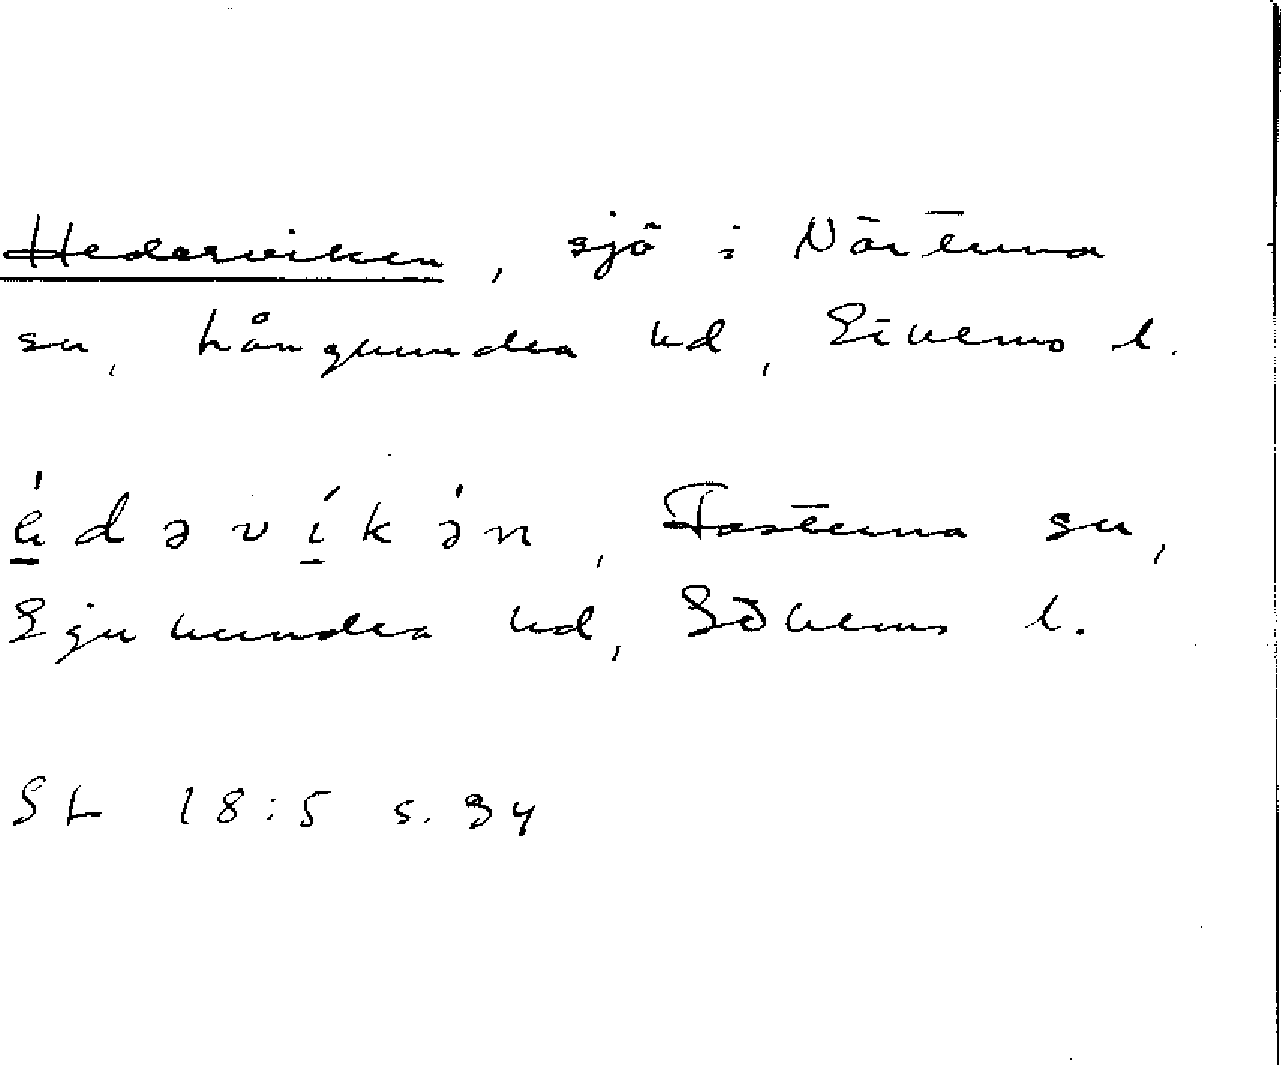 Hederviken, sjö i Närtuna
sn, Långhundra hd, Sthms l.
édəvíkə́n, Fasterna sn,
Sjuhundra hd, Sthms l.
SL 18:5 s. 34